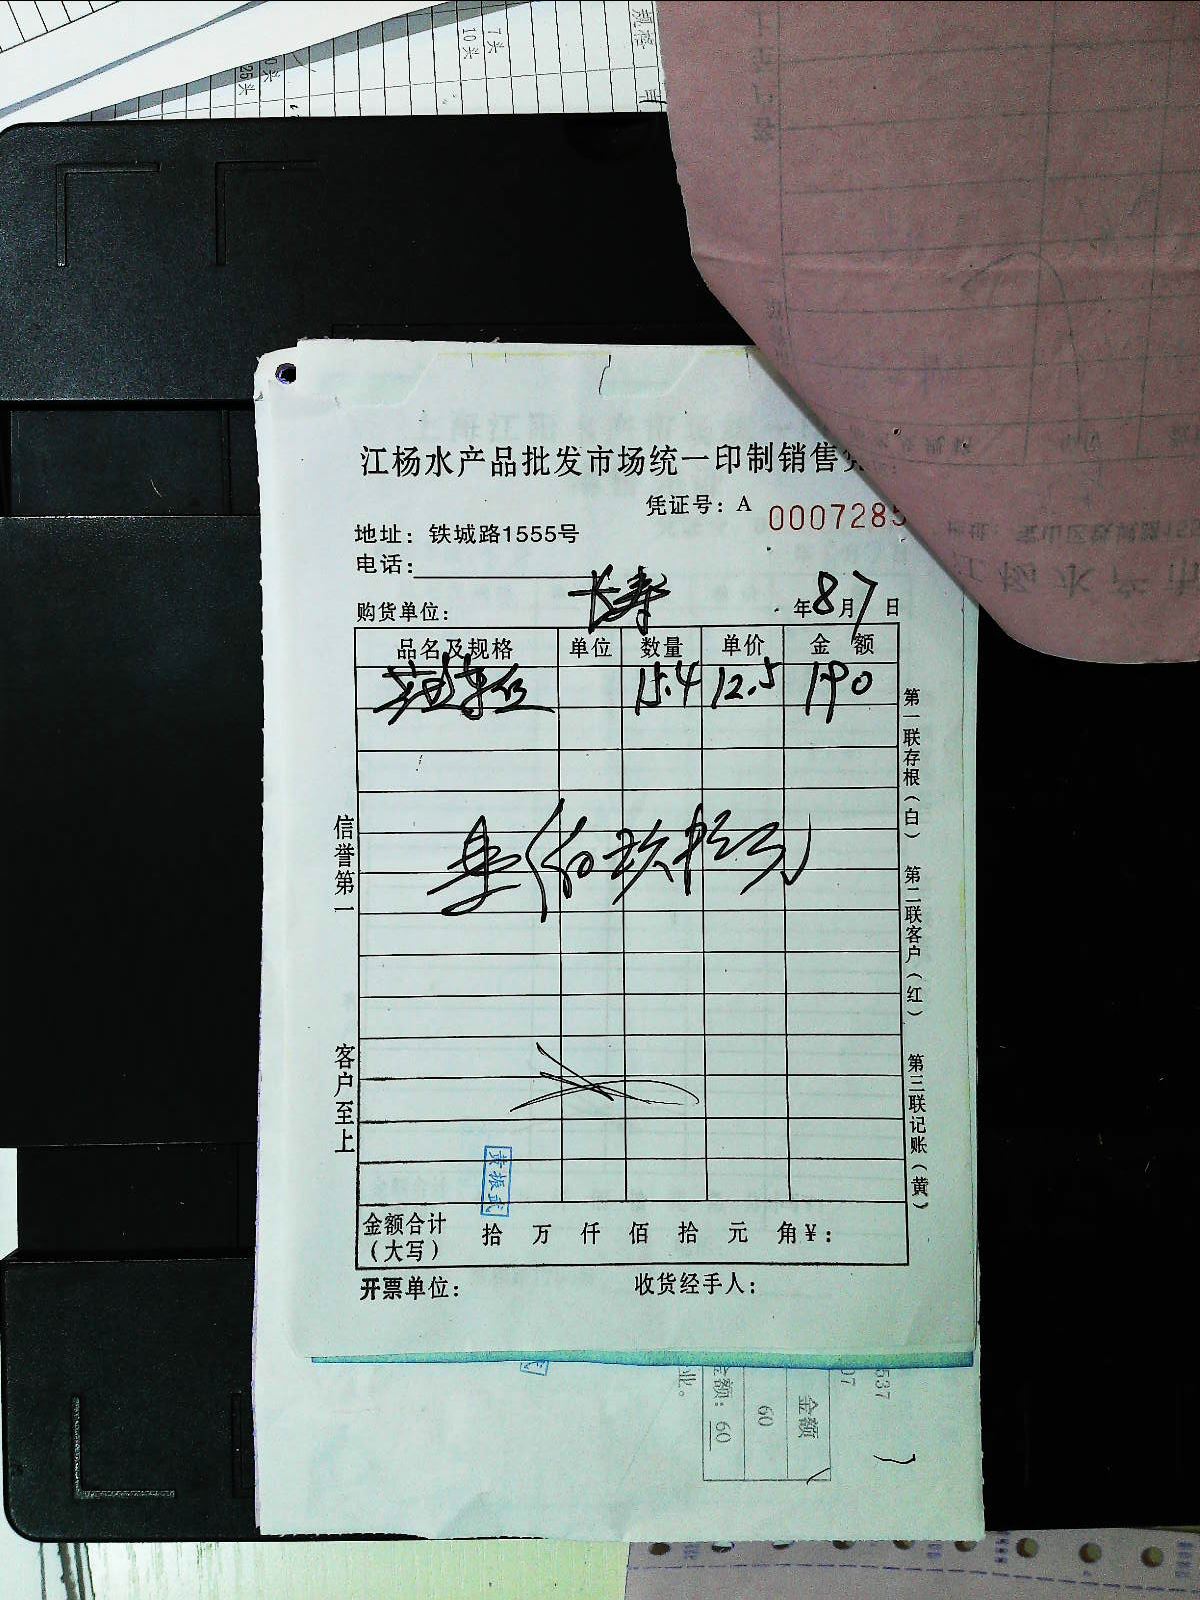 规格
7头
10头
25头
江杨水产品批发市场统一印制销售
凭证号：A 0007285
地址：铁城路1555号
电话：
购货单位：长寿 年8月7日
品名及规格 单位 数量 单价 金额
15.4 12.5 190
壹佰玖拾元
信誉第一
客户至上
第一联存根（白）
第二联客户（红）
第三联记账（黄）
黄振武
金额合计（大写） 拾 万 仟 佰 拾 元 角¥：
开票单位： 收货经手人：
537
07
金额
60
金额：60
业。